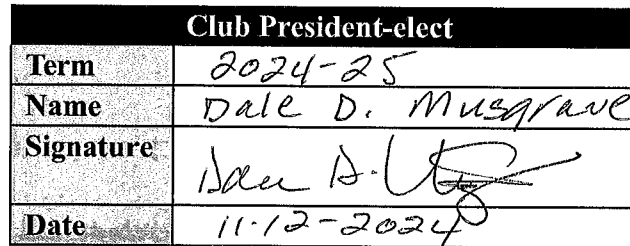 Club President-elect
Term 2024-25
Name Dale D. Musgrave
Signature
Date 11-12-2024